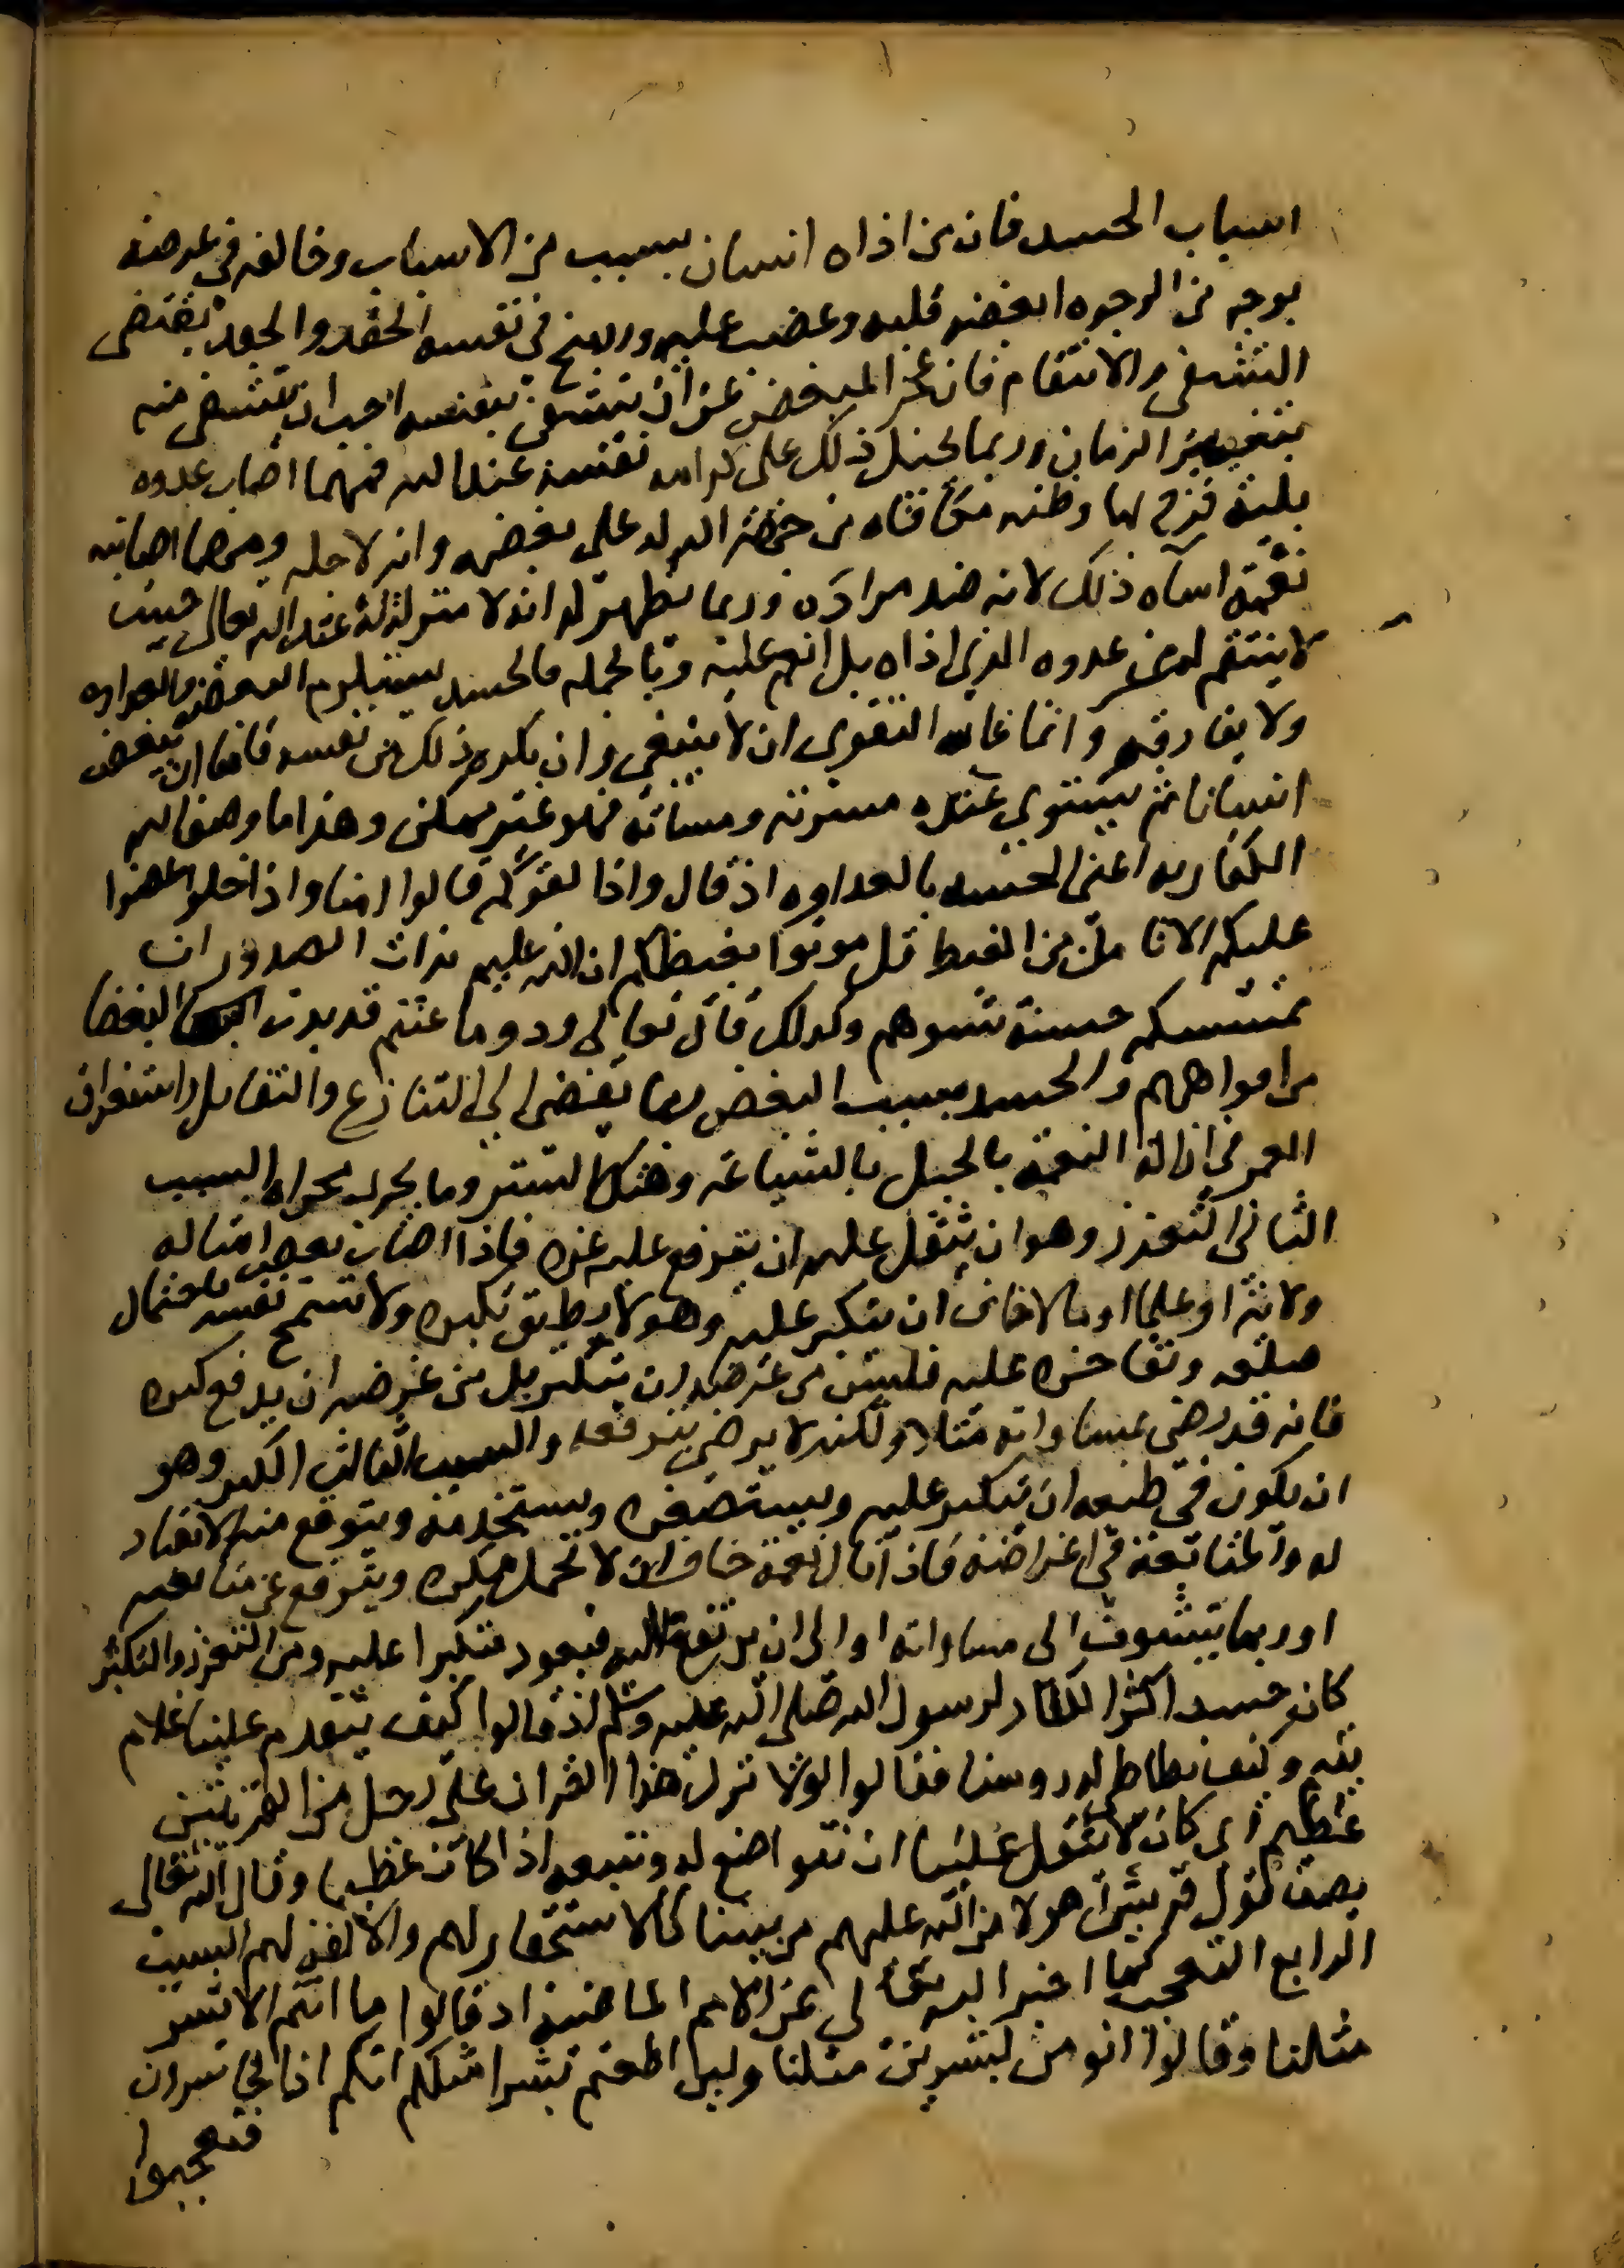 اسباب الحسد فان من اذاه انسان بسبب من الاسباب وخالفه في غرضه
بوجه من الوجوه ابغضه قلبه وغضب عليه ورسخ في نفسه الحقد والحقد يقتضى
التشفى والانتقام فان عجز المبغض عن ان يتشفى بنفسه احب ان يتشفى منه
بتغيير الزمان وربما يحيل ذلك على كرامه نفسه عند الله فمهما اصاب عدوه
بلية فرح بها وظنه مكافاه من جهة الله له على بغضه وانه لاجله ومهما اصابته
نعمة اساه ذلك لانه ضد مراده وربما يظهر له انه لا منزلة له عند الله تعالى حيث
لا ينتقم له من عدوه الذي اذاه بل انعم عليه وبالجمله فالحسد يستلزم البغض والعداوه
ولا يفارقه وانما غايه التقوى ان لا يبغى وان يكره ذلك من نفسه فاما ان يبغض
انسانا ثم يستوي عنده مسرته ومساته فهو غير ممكن وهذا ما وصف الله
الكفار به اعنى الحسد بالعداوه اذ قال واذا لقوكم قالوا امنا واذا خلوا عضوا
عليكم الانامل من الغيظ قل موتوا بغيظكم ان الله عليم بذات الصدور ان
تمسسكم حسنة تسوهم وكذلك قال تعالى ودوا ما عنتم قد بدت البغضا
من افواههم والحسد بسبب البغض ربما يفضى الى التنازع والتقاتل واستغراق
العمر في ازالة النعمة بالحيل بالشياعه وهتك الستر وما يجرى مجراه السبب
الثانى التعزز وهو ان يثقل عليه ان يترفع عليه غيره فاذا اصاب بعض امثاله
ولاية او علما او مالا خاف ان يتكبر عليه وهو لا يطيق تكبره ولا تسمح نفسه باحتمال
صلفه وتفاخره عليه فليس من غرضه ان يتكبر بل من غرضه ان يدفع كبره
فانه قد رضى بمساواته مثلا ولكنه لا يرضى بترفعه والسبب الثالث الكبر وهو
ان يكون في طبعه ان يتكبر عليه ويستصغره ويستخدمه ويتوقع منه الانقياد
له والمتابعة في اغراضه فاذا نال نعمة خاف ان لا تحمل تكبره ويترفع عن متابعته
او ربما يتشوف الى مساواته او الى ان يرتفع اليه فيعود متكبرا عليه ومن التعزز والتكبر
كان حسد اكثر الكفار لرسول الله صلى الله عليه وسلم اذ قالوا كيف يتقدم علينا غلام
يتيم وكيف نطاطى له روسنا فقالوا لولا نزل هذا القران على رجل من القريتين
عظيم اى كان لا يثقل علينا ان نتواضع له ونتبعه اذا كان عظيما وقال الله تعالى
يصف قول قريش اهولا من الله عليهم من بيننا كالاستحقار لهم والانفة لهم السبب
الرابع التعجب كما اخبر الله تعالى عن الامم الماضية اذ قالوا ما انتم الا بشر
مثلنا وقالوا انومن لبشرين مثلنا ولين اطعتم بشرا مثلكم انكم اذا لخاسرون
فتعجبوا